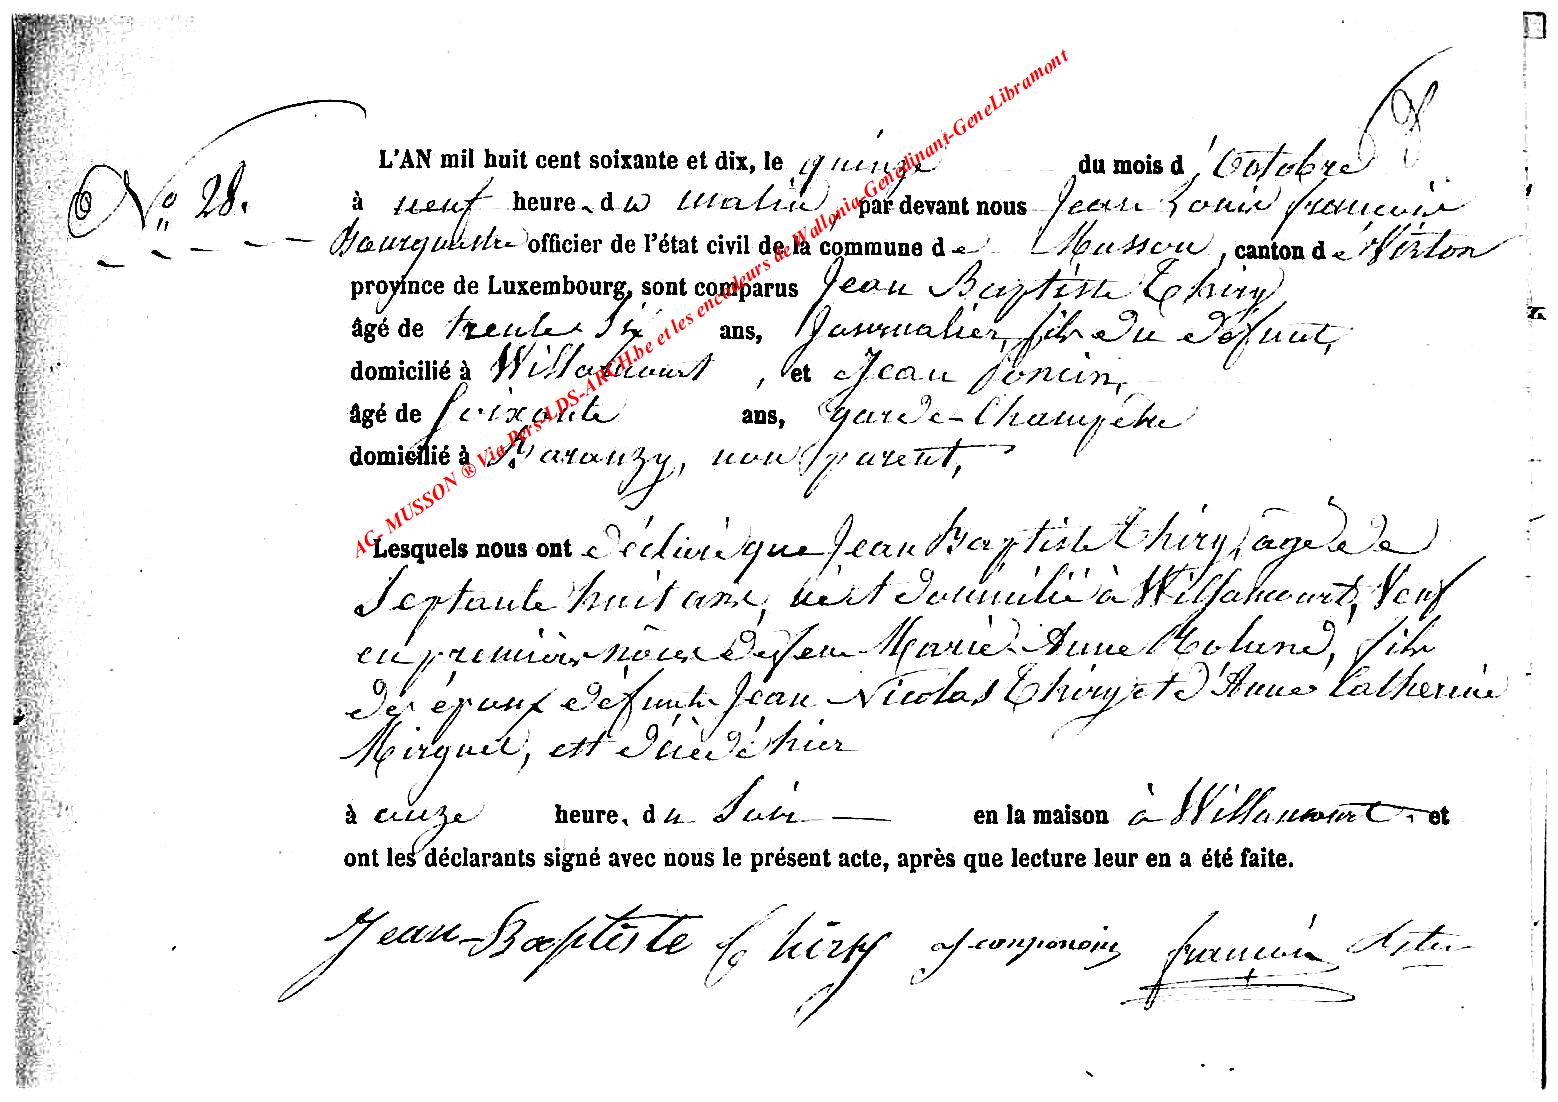 N° 28.
L'AN mil huit cent soixante et dix, le quinze du mois d'Octobre
à neuf heure du matin, par devant nous Jean Louis françois
Bourguestre officier de l'état civil de la commune de Musson, canton de Virton
province de Luxembourg, sont comparus Jean Baptiste Thiry
âgé de trente Six ans, Journalier, fils du défunt,
domicilié à Willancourt, et Jean Poncin,
âgé de Soixante ans, garde-Champêtre
domicilié à Baranzy, non parent,
Lesquels nous ont déclaré que Jean Baptiste Thiry, âgé de
Septante huit ans, né et domicilié à Willancourt, Veuf
en premières nôces de feue Marie-Anne Roland, fils
des époux défunts Jean Nicolas Thiry et d'Anne Catherine
Mirguet, est décédé hier
à onze heure. du Soir en la maison à Willancourt. et
ont les déclarants signé avec nous le présent acte, après que lecture leur en a été faite.
Jean-Baptiste Thiry Jeanponcin françois
AG- MUSSON ® Via Pers-LDS-ARCH.be et les encodeurs de Wallonia-Genedinant-GeneLibramont